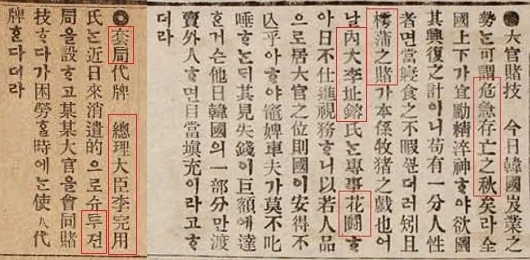 ●大官賭技 今日韓國岌業之
勢는可謂危急存亡之秋矣라全
國上下가宜勵精淬神ᄒᆞ야欲圖
其興復之計이니苟有一分人性
者면當寢食之不暇ᄲᅮᆫ더러矧且
樗蒲之賭가本係牧猪之戲也어
날內大李址鎔氏는專事花鬪ᄒᆞ
야日不仕進視務ᄒᆞ니以若人品
으로居大官之位則國이安得不
亾乎아ᄒᆞ야婢車夫가莫不叱
唾ᄒᆞ는ᄃᆡ其見失錢이巨額에達
ᄒᆞ거슨他日韓國의一部分만渡
賣外人ᄒᆞ면自當塡充이라고ᄒᆞ
더라
◎套局代牌 總理大臣李完用
氏는近日來消遣的으로슈투전
局을設ᄒᆞ고某某大官을會同賭
技ᄒᆞ다가困勞ᄒᆞᆯ時에는使人代
牌ᄒᆞᆫ다더라